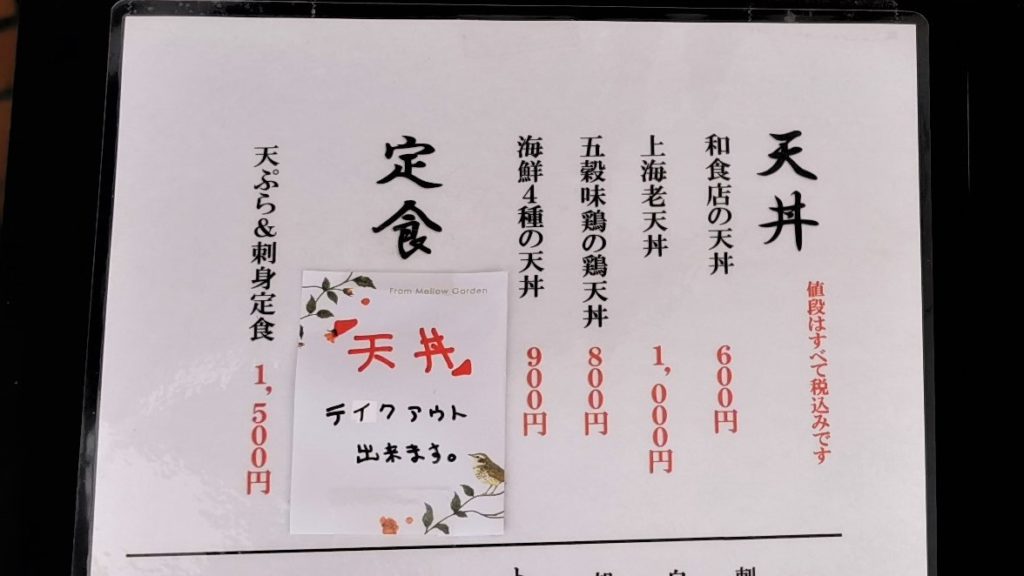 天丼
値段はすべて税込みです
和食店の天丼 600円
上海老天丼 1,000円
五穀味鶏の鶏天丼 800円
海鮮4種の天丼 900円
定食
天ぷら&刺身定食 1,500円
From Mellow Garden
『天丼』
テイクアウト
出来ます。